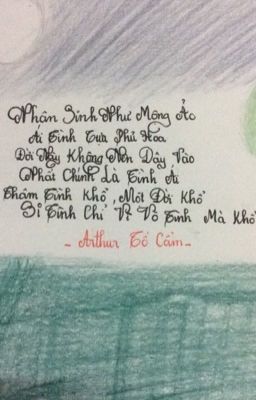 Nhân Sinh Như Mộng Ảo
Ái Tình Tựa Phù Hoa
Đời Này Không Nên Dây Vào
Nhất Chính Là Tình Ái
Thâm Tình Khổ, Một Đời Khổ
Si Tình Chỉ Vì Vô Tình Mà Khổ
_ Arthur Tố Cẩm _